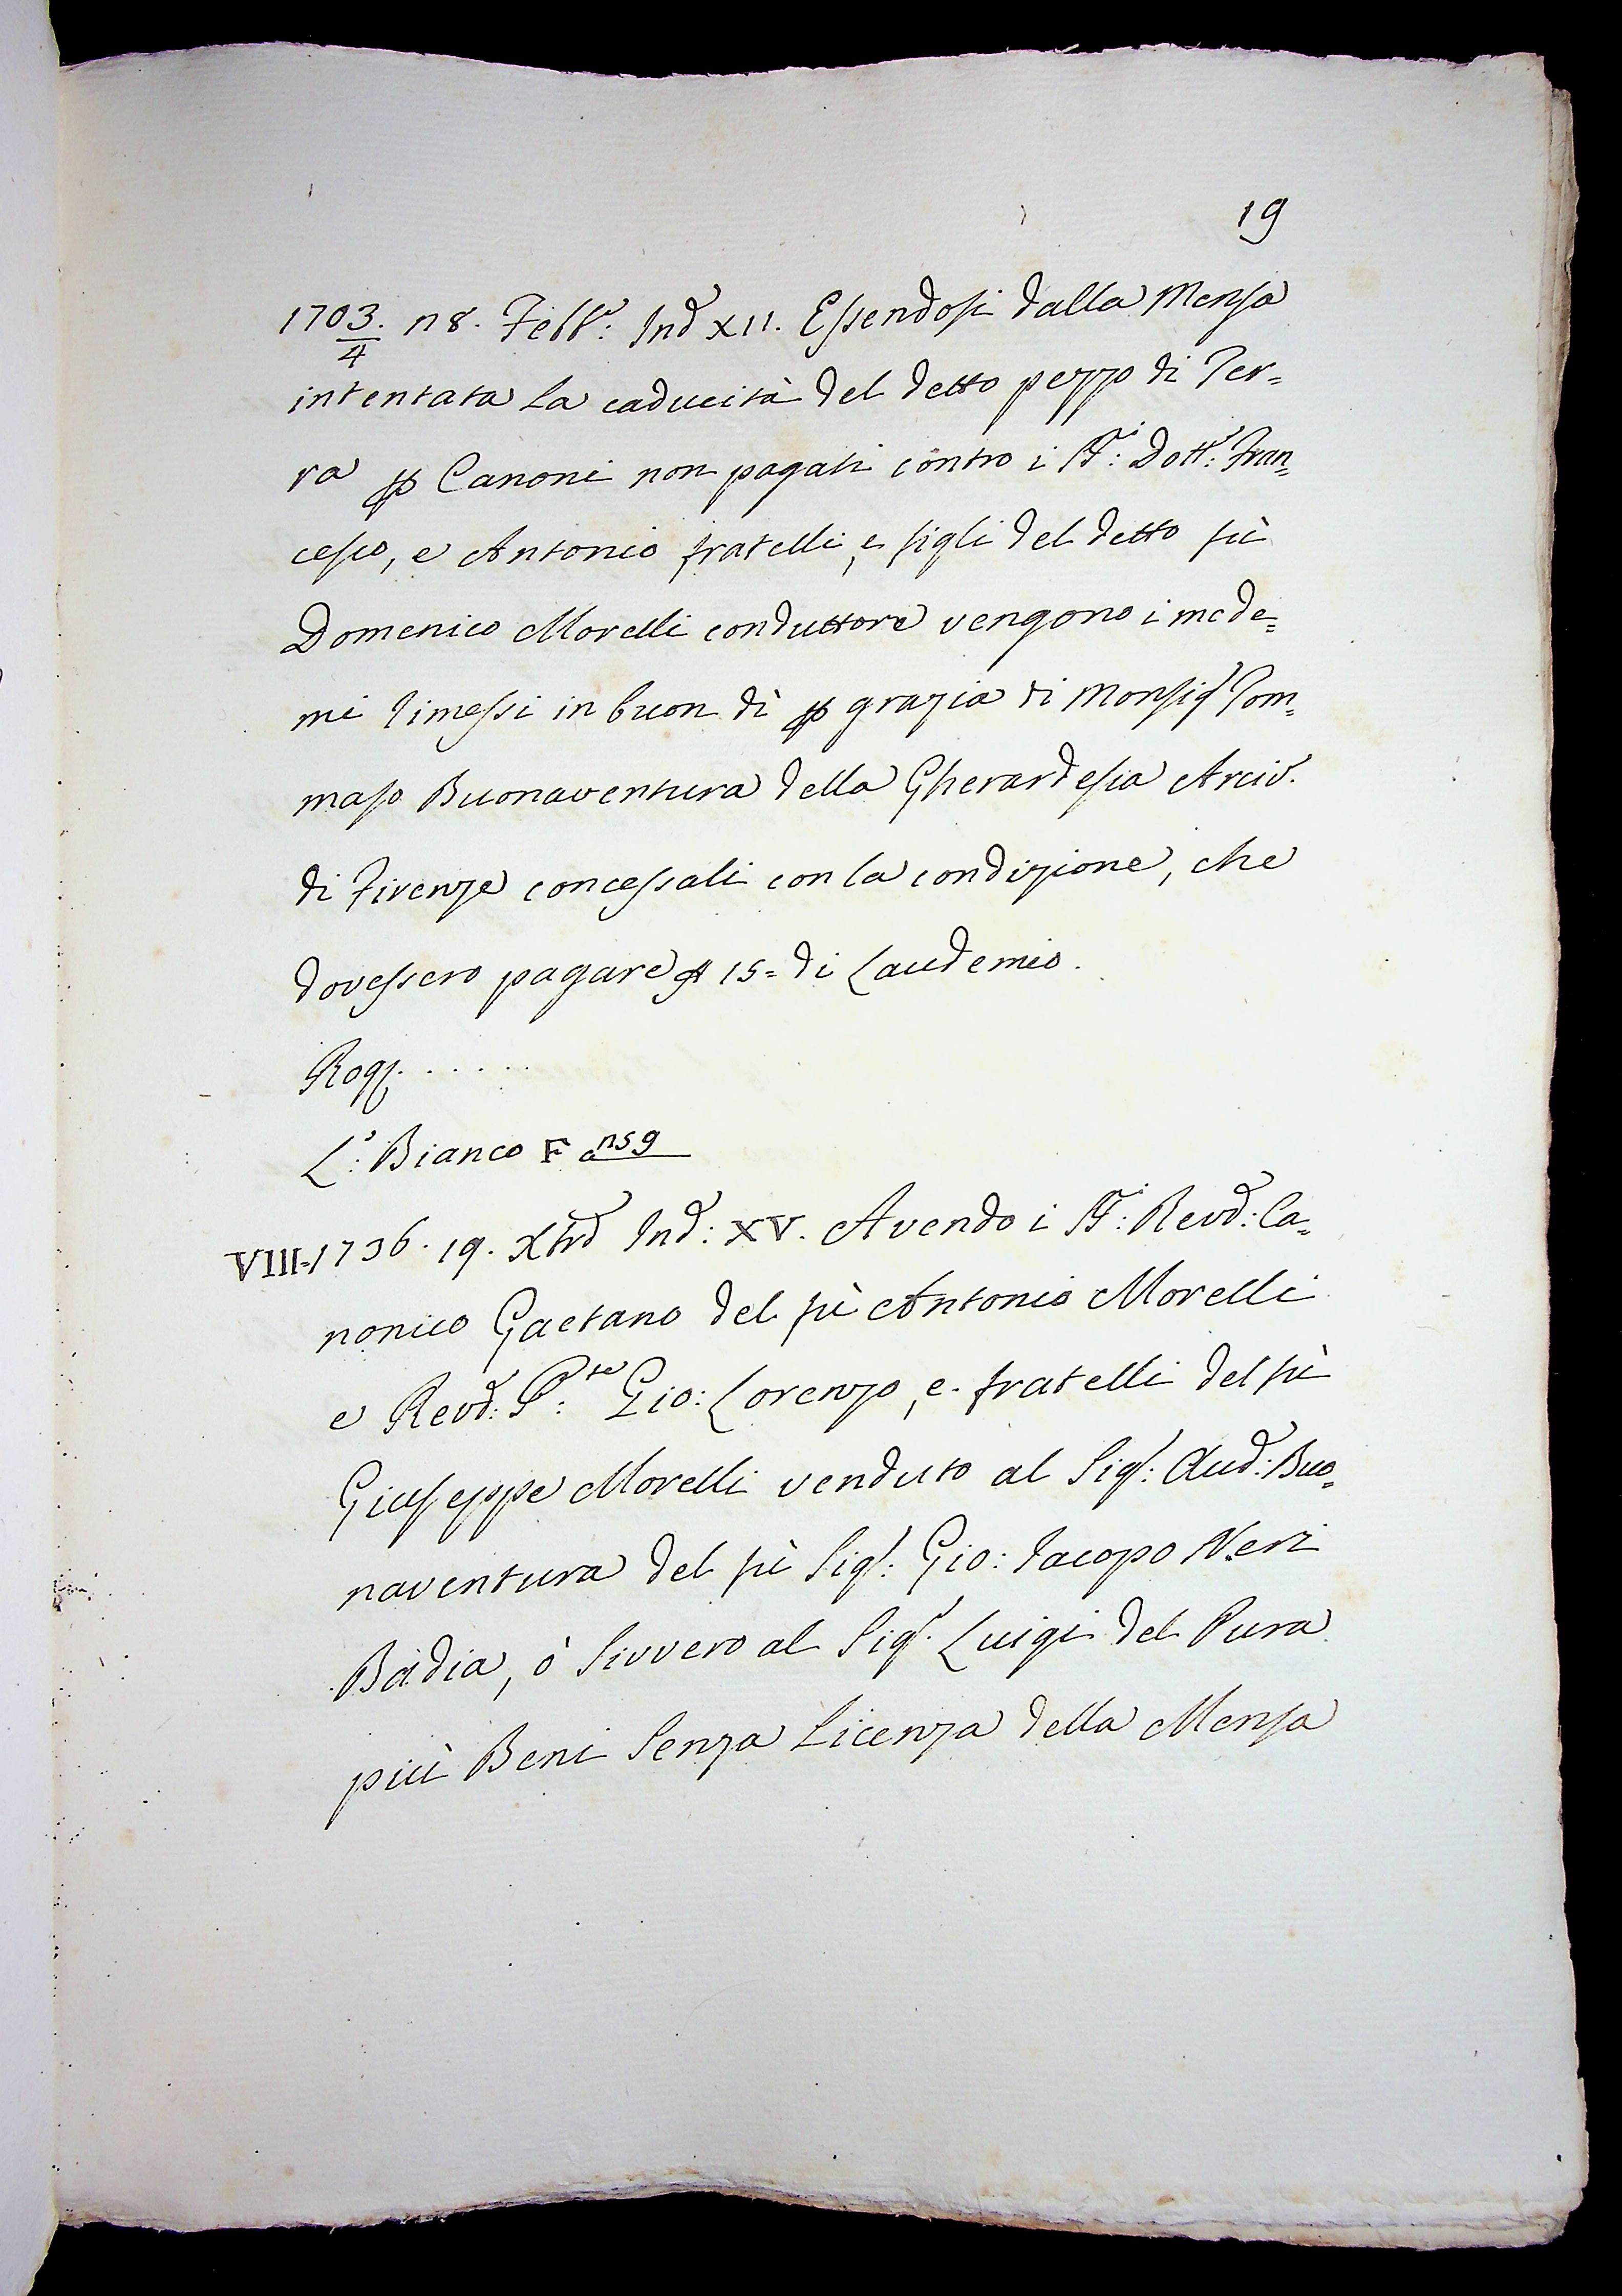 19
1703/4. 18. Febb.º: Ind XII. Essendosi dalla Mensa
intentata la caducità del detto pezzo di Ter=
ra p Canoni non pagati contro i SS.i: Dott.r: Fran=
cesco, e Antonio fratelli, e figli del detto fù
Domenico Morelli conduttore vengono i mede=
mi rimessi in buon dì p grazia di Monsig.r Tom=
maso Buonaventura della Gherardesca Arciv.
di Firenze concessali con la condizione, che
dovessero pagare 15= di Laudemio.
Rog. . . . . . .
L.º: Bianco F a 159
VIII=1736. 19. Xbrē Ind: XV. Avendo i SS.i: Revd: Ca=
nonico Gaetano del fù Antonio Morelli
e Revd: P.te: Gio: Lorenzo, e fratelli del fù
Giuseppe Morelli venduto al Sig.r: Aud: Buo=
naventura del fù Sig.r: Gio: Iacopo Neri
Badia, ò Sivvero al Sig.r. Luigi del Pura
più Beni Senza Licenza della Mensa